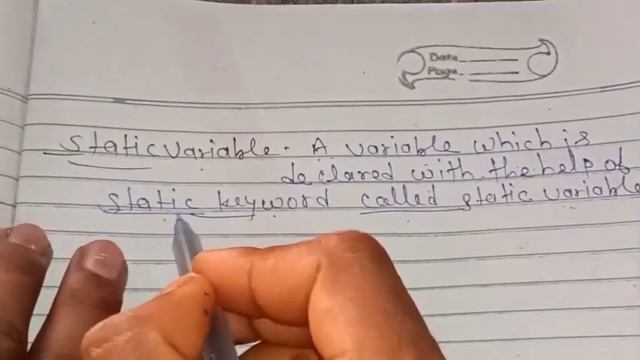 Date
Page
Static Variable - A variable which is
declared with the help of
static keyword called static variable